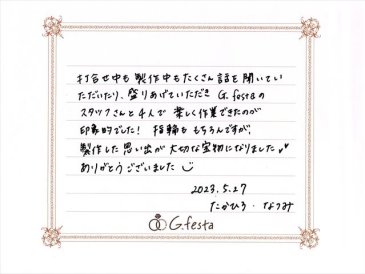 打合せ中も製作中もたくさん話を聞いてい
ただいたり、盛りあげていただき G.festaの
スタッフさんと4人で 楽しく作業できたのが
印象的でした! 指輪も もちろんですが、
製作した思い出が 大切な宝物になりました
ありがとうございました
2023.5.27
たかひろ・なつみ
G.festa